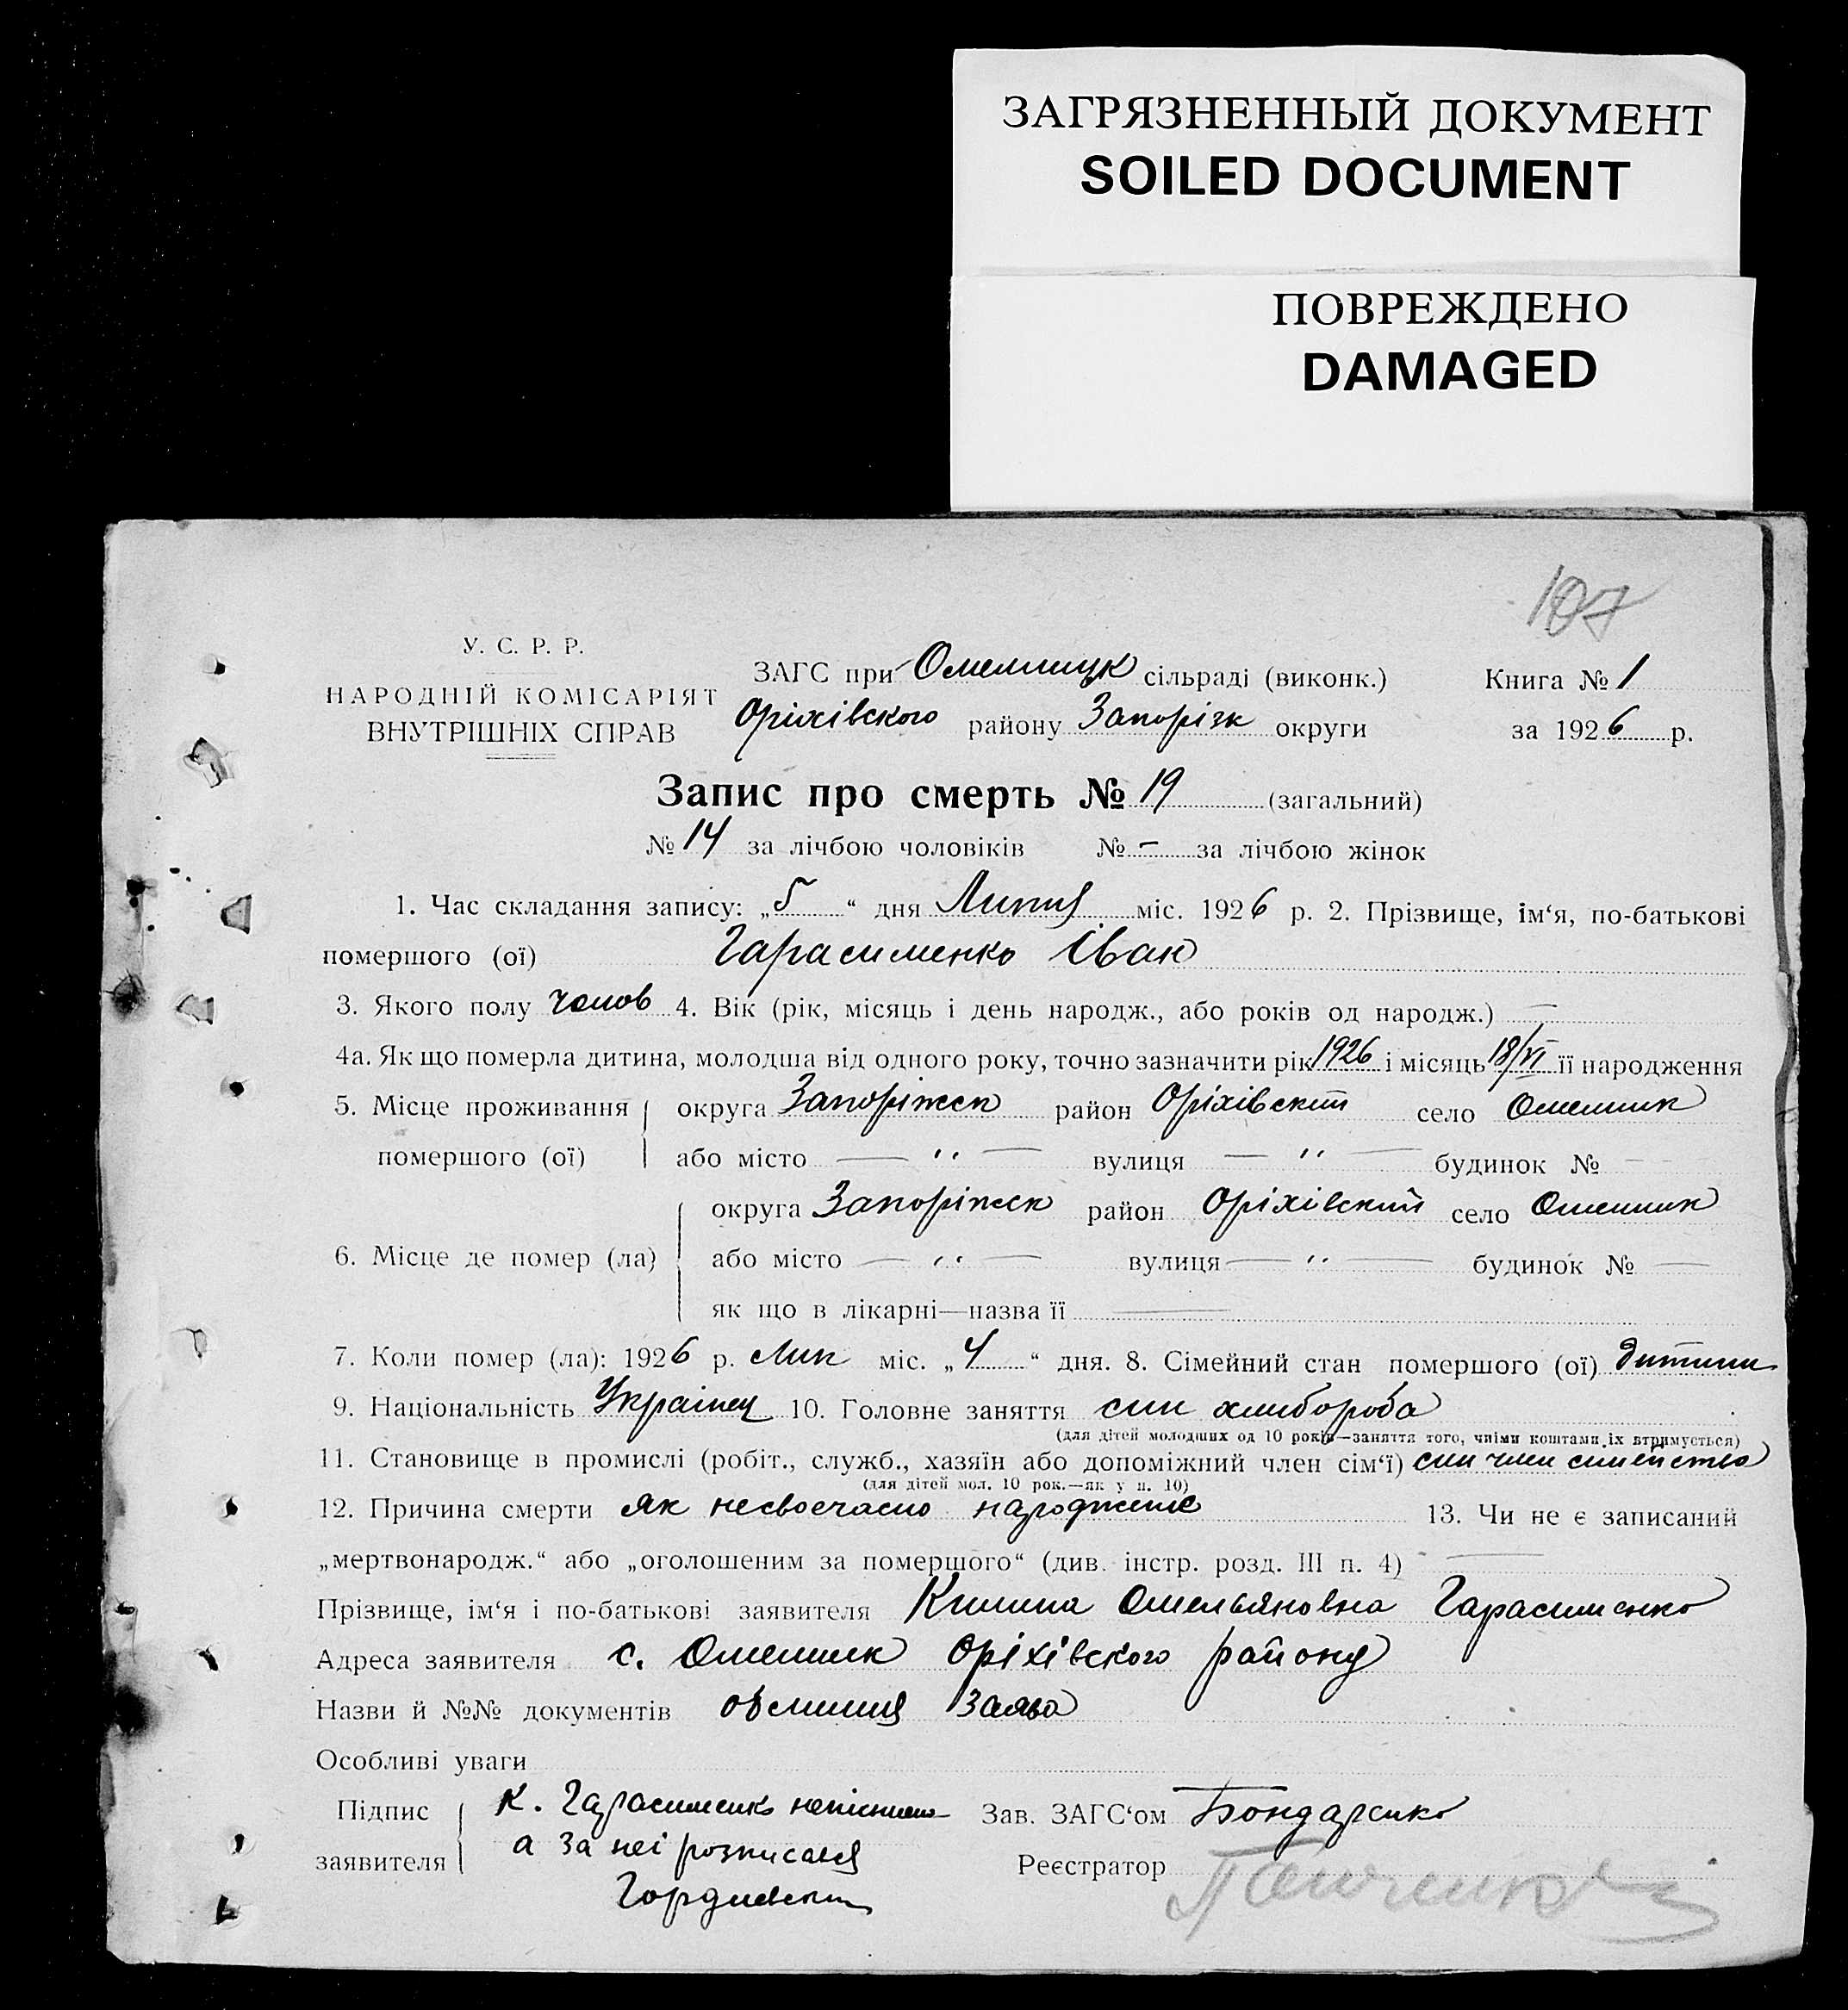 ЗАГРЯЗНЕННЫЙ ДОКУМЕНТ
SOILED DOCUMENT
ПОВРЕЖДЕНО
DAMAGED
107
У. С. Р. Р.
НАРОДНІЙ КОМІСАРІЯТ
ВНУТРІШНІХ СПРАВ
ЗАГС при Омельницк сільраді (виконк.)
Оріхівского району Запорізк округи
Книга № 1
за 1926 р.
Запис про смерть № 19 (загальний)
№ 14 за лічбою чоловіків № – за лічбою жінок
1. Час складання запису: „5“ дня Липця міс. 1926 р. 2. Прізвище, ім‘я, по-батькові
помершого (ої) Гарасименко Іван
3. Якого полу Чолов 4. Вік (рік, місяць і день народж., або років од народж.) —
4а. Як що померла дитина, молодша від одного року, точно зазначити рік 1926 і місяць 18/VI її народження
5. Місце проживання помершого (ої) округа Запоріжск район Оріхівский село Омельник
або місто — „ — вулиця — „ — будинок № —
6. Місце де помер (ла) округа Запоріжск район Оріхівский село Омельник
або місто — „ — вулиця — „ — будинок № —
як що в лікарні—назва її —
7. Коли помер (ла): 1926 р. Лип міс. „4“ дня. 8. Сімейний стан помершого (ої) дитина
9. Національність Украінец 10. Головне заняття син хлибороба
(для дітей молодших од 10 років—заняття того, чиїми коштами їх втримується)
11. Становище в промислі (робіт., служб., хазяїн або допоміжний член сім‘ї) син член симейства
(для дітей мол. 10 рок.—як у п. 10)
12. Причина смерти як несвоечасно народжене 13. Чи не є записаний
„мертвонародж.“ або „оголошеним за померщого“ (див. інстр. розд. III п. 4) —
Прізвище, ім‘я і по-батькові заявителя Килина Омельяновна Гарасименко
Адреса заявителя с. Омельник Оріхівского району
Назви й №№ документів заява
Особливі уваги
Підпис заявителя К. Гарасименко
а За неі розписався
Зав. ЗАГС‘ом Бондаренко
Реєстратор